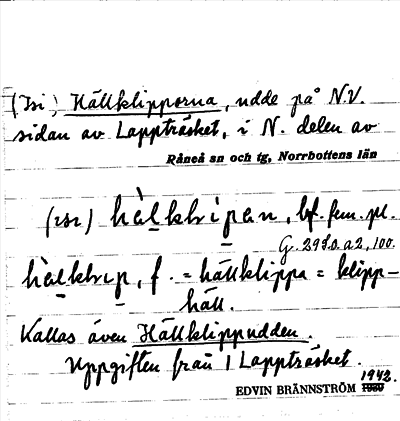 (Isi,) Hällklipporna, udde på N.V.
sidan av Lappträsket, i N. delen av
Råneå sn och tg, Norrbottens län
hàlkḷipan, bf. fem. pl.
G. 2950. a 2, 100.
hàlkḷip, f. = hällklippa = klipp-
häll.
Kallas även Hällklippudden.
Uppgiften från 1 Lappträsket.
1942.
EDVIN BRÄNNSTRÖM 1939